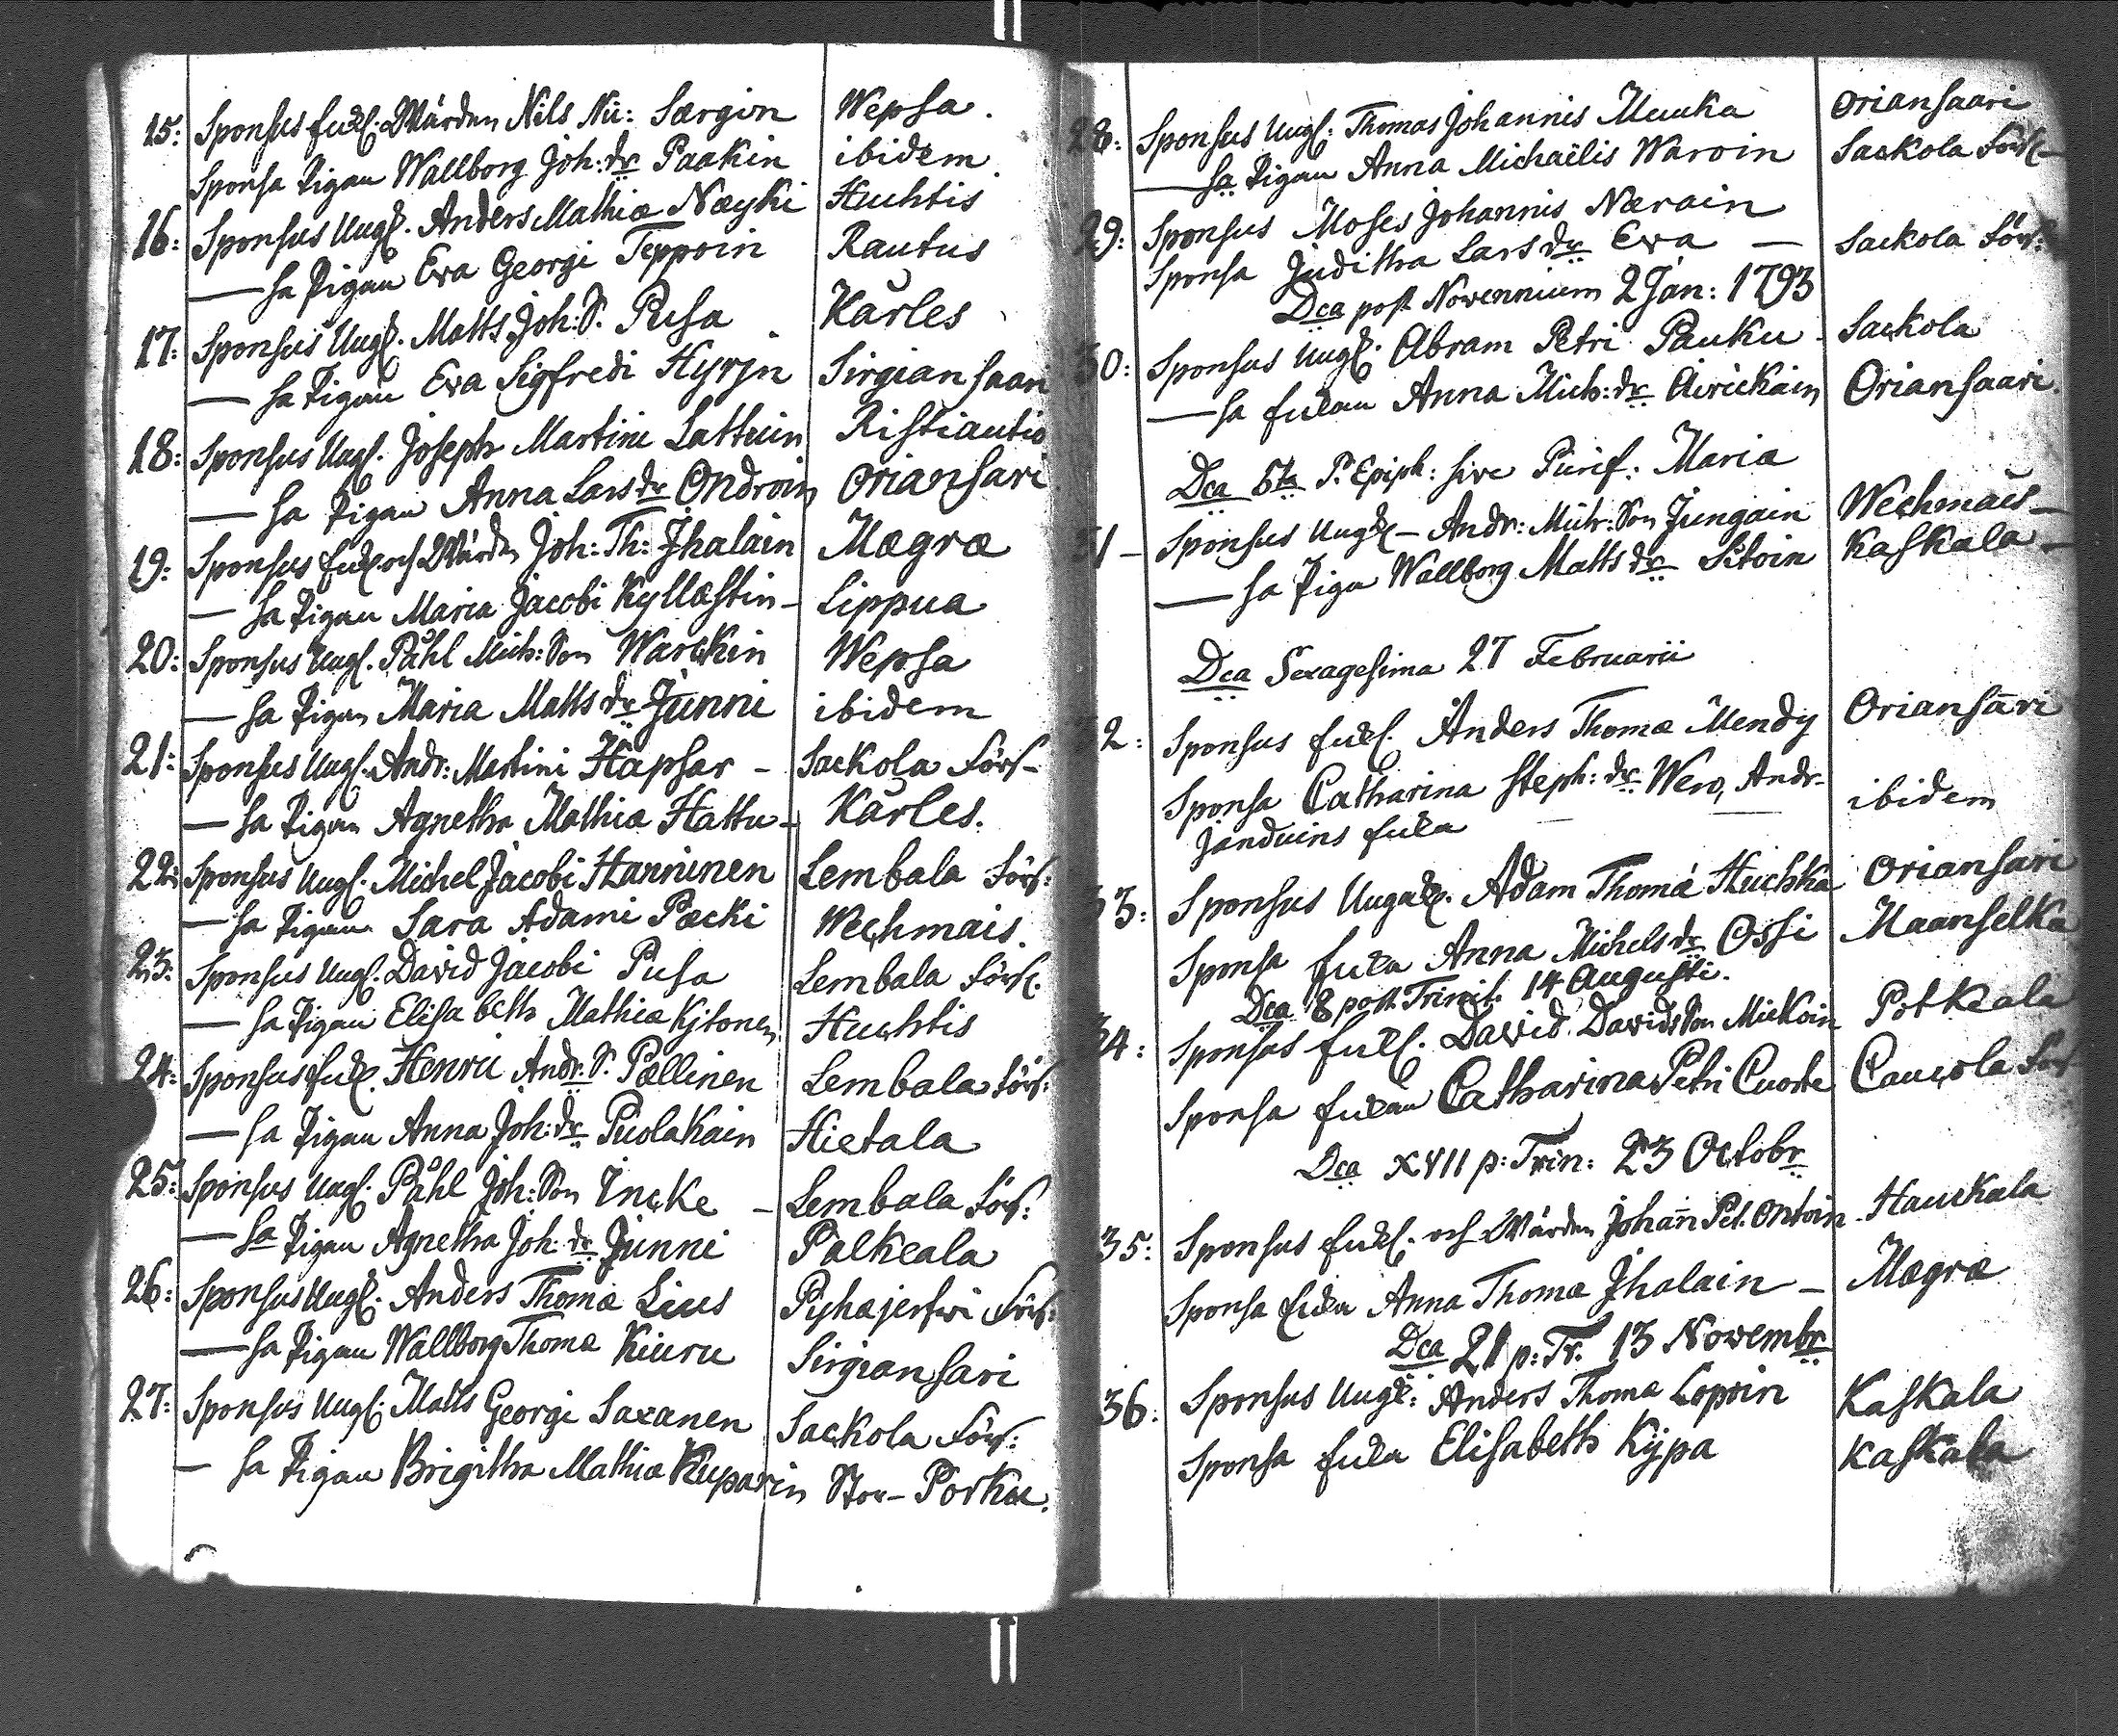 15: Sponsus Enkl. Wärden Nils Nii: Særgin Wepsa.
Sponsa Pigan Wallborg Joh: dr Paakin ibidem
16: Sponsus Ungk. Anders Mathiæ Næyki Huhtis
— sa Pigan Eva Georgi Teppoin Rautus
17: Sponsus Ungk. Matts Joh: S. Pusa Karles
— sa Pigan Eva Sigfredi Hyrjn Sirgiansaari
18: Sponsus Ungk. Joseph Martini Lattuin Ristiautio
— sa Pigan Anna Lars dr Ondroin Oriansari
19: Sponsus Enkl. och Wärden Joh: Th: Jhalain Mægræ
— sa Pigan Maria Jacobi Kyllæstin — Lippua
20: Sponsus Ungk. Påhl Mich: Son Warckin Wepsa
— sa Pigan Maria Matts dr Junni ibidem
21: Sponsus Ungk. Andr: Martini Hapsar — Sackola Förs—
— sa Pigan Agnetha Mathiæ Hattu — Karles.
22: Sponsus Ungk. Michel Jacobi Hanninen Lembala Förs:
— sa Pigan Sara Adami Pæcki Wechmais.
23: Sponsus Ungk. David Jacobi Pusa Lembala Förs.
— sa Pigan Elisabeth Mathiæ Kytonen Huchtis
24: Sponsus Enkl. Henric Andr. S. Pællinen Lembala Förs:
— sa Pigan Anna Joh: dr Puolakain Hietala
25: Sponsus Ungk. Påhl Joh: Son Incke — Lembala Förs:
— sa Pigan Agnetha Joh: dr Junni Palkeala
26: Sponsus Ungk. Anders Thomæ Lius Pyhajerfwi Förs:
— sa Pigan Wallborg Thomæ Kiuru Sirgiansari
27: Sponsus Ungk. Matts Georgi Saxanen Sackola Förs:
— sa Pigan Brigitha Mathiæ Kuparin Stor-Porku.
28: Sponsus Ungk: Thomas Johannis Muuka Oriansaari
— sa Pigan Anna Michaëlis Waroin Sackola Förs—
29: Sponsus Moses Johannis Nærain
Sponsa Juditha Lars dr Eva — Sackola Förs:
Dca post Novennium 2 Jan: 1793
30: Sponsus Ungk: Abram Petri Pauku Sackola
— sa Enkan Anna Mich: dr Airickain Oriansaari.
Dca 5ta P. Epiph: sive Purif: Maria
31 — Sponsus Ungk — Andr: Mich: Son Jungain Wechmais —
— sa Piga Wallborg Matts dr Sitoin Kaskala —
Dca Sexagesima 27 Februarii
32: Sponsus Enkl. Anders Thomæ Mendy Oriansari
Sponsa Catharina Steph: dr Wew, Andr— ibidem
Janduins Enka
33: Sponsus Ungk. Adam Thomá Huchka Oriansari
Sponsa Enka Anna Michels dr Ossi Maanselka
Dca 8 post Trinit. 14 Augusti.
34: Sponsus Enkl. David Davids Son Mickoin Potkeala
Sponsa Enkan Catharina Petri Cuorte Caucola Förs
Dca XVII p: Trin: 23 Octobr
35: Sponsus Enkl. och Wärden Johan Pet. Ontoin. Hauckala
Sponsa Enka Anna Thomæ Jhalain — Mægræ
Dca 21 p: Tr. 13 Novembr
36: Sponsus Ungk: Anders Thomæ Lopoin Kaskala
Sponsa Enka Elisabeth Kypa Kaskala